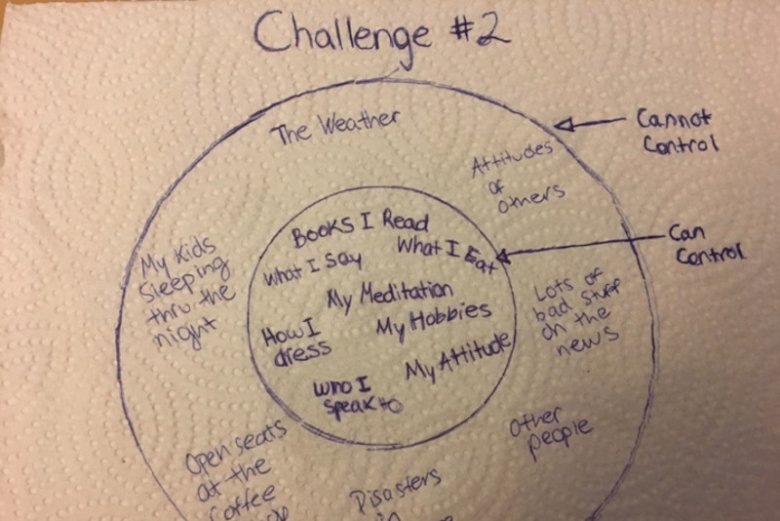 Challenge #2
The Weather
Cannot
Control
Attitudes
of
others
Books I Read
What I Eat
Can
Control
What I Say
My Kids
Sleeping
thru the
night
My Meditation
Lots of
bad stuff
on the
news
My Hobbies
How I
dress
My Attitude
Who I
Speak to
Other
people
Open seats
at the
Coffee
Disasters
in